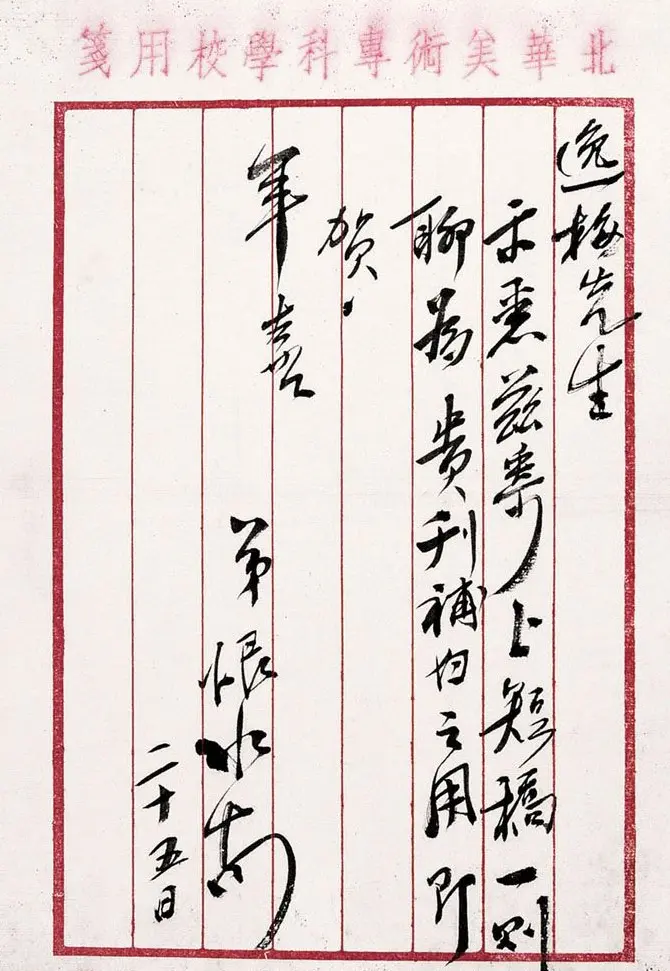 北華美術專科學校用箋
逸梅先生
示悉茲寄上短稿一則
聊為貴刊補白之用即
賀
年喜
弟恨水
二十五日